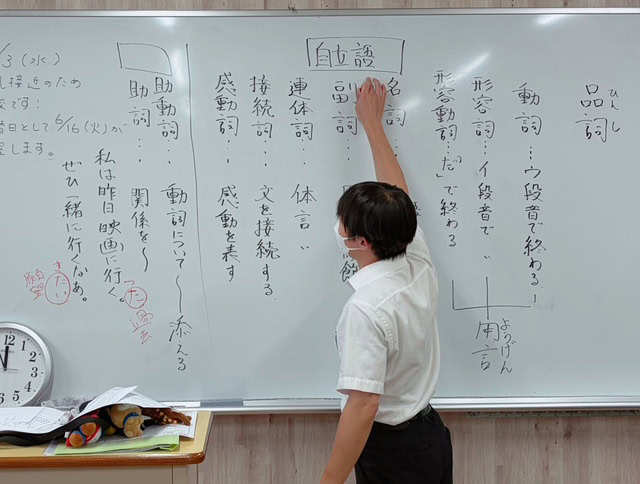 品詞
ひんし
動詞…ウ段音で終わる!
形容詞…イ段音で〃
形容動詞…「だ」で終わる
用言
ようげん
自立語
名詞…
副詞…
連体詞… 体言〃
接続詞… 文を接続する
感動詞… 感動を表す
助動詞… 動詞について〜添える
助詞… 関係を〜
私は昨日映画に行く。
った 過去
ぜひ一緒に行くなあ。
きたい 願望
3(水)
接近のため
です!
日として6/16(火)が
します。